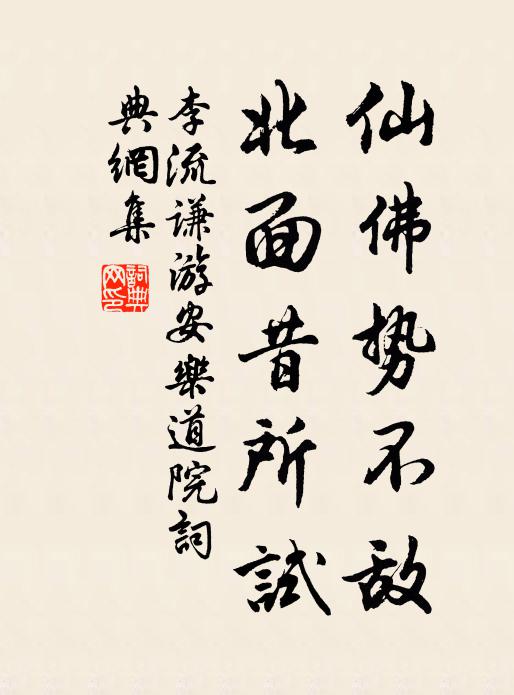 仙佛势不敌
北面昔所試
李流谦游安樂道院詞
典網集
詞典网印